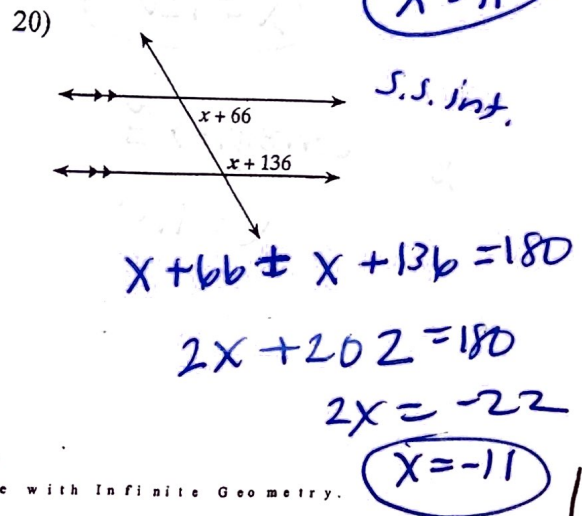 20)
S.S. int.
x + 66
x + 136
x + 66 ± x + 136 = 180
2x + 202 = 180
2x = -22
x = -11
e with Infinite Geometry.